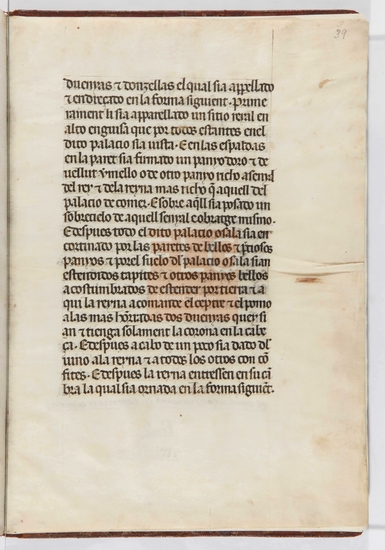 39
duenyas ⁊ donzellas el qual sia appellado
⁊ endreçado en la forma siguient. Prime
rament li sia apparellado un sitio reral en
alto enguisa que por todos estantes en el
dito palacio sia uista. E en las espaldas
en la paret sia firmado un panyo doro ⁊ de
uellut ṽmello o de otro panyo richo a senyal
del rey ⁊ de la reyna mas richo q̃ aquell del
palacio de comer. E sobre aq̃ll sia posado un
sobrecielo de aquell senyal cobratge mismo.
E despues todo el dito palacio o sala sia en
cortinado por las paretes de bellos ⁊ p̃ciosos
panyos ⁊ por el suelo dl palacio o sala sian
estendidos tapites ⁊ otros panyos bellos
acostumbrados de estender por tierra ⁊ a
qui la reyna acomande el ceptre ⁊ el pomo
a las mas hõrradas dos duenyas que y si
an ⁊ tienga solament la corona en la cabe
ça. E despues a cabo de un poco sia dado dl
uino a la reyna ⁊ a todos los otros con cõ
fites. E despues la reyna entressen en su cã
bra la qual sia ornada en la forma siguiẽt.